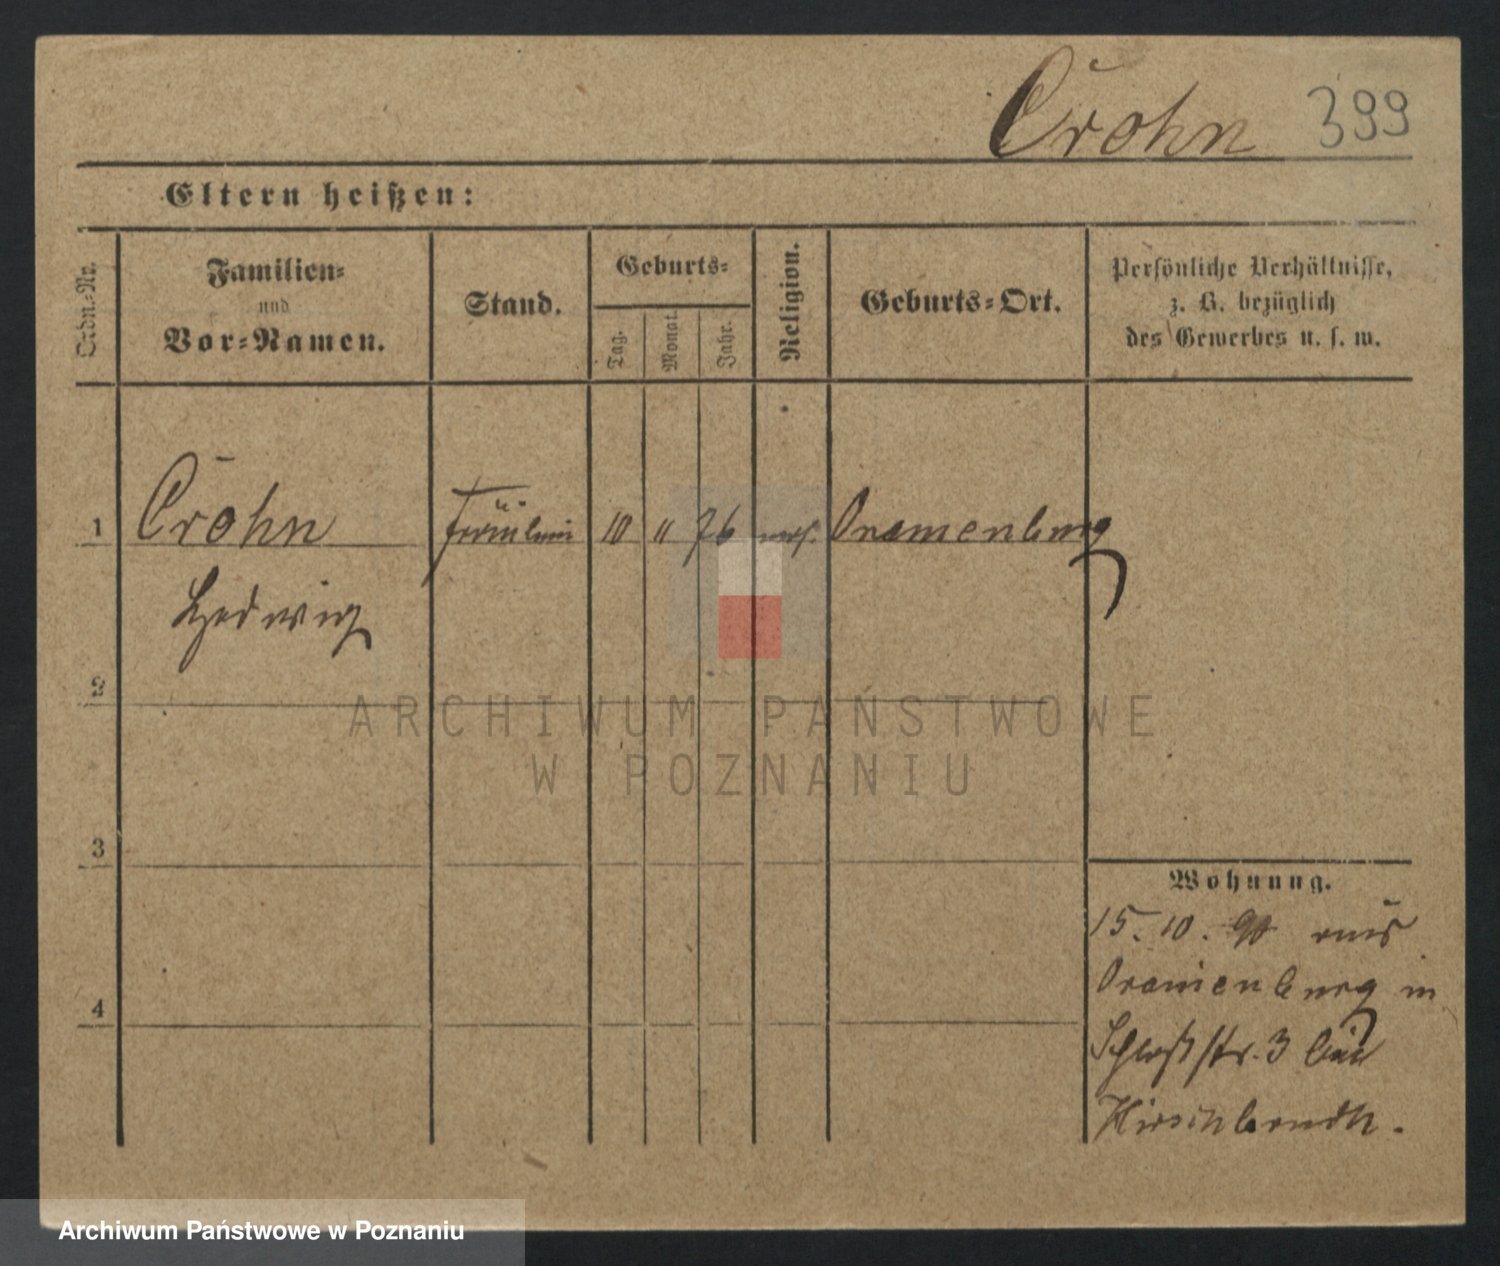 Crohn 399
Eltern heißen:
Ordn.-Nr.
Familien-
und
Vor-Namen.
Stand.
Geburts-
Tag.
Monat.
Jahr.
Religion.
Geburts-Ort.
Persönliche Verhältnisse,
z. B. bezüglich
des Gewerbes u. s. w.
1 Crohn Fräulein 10 " 76 mos. Oranienburg
Hedwig
2
ARCHIWUM PAŃSTWOWE
W POZNANIU
3
Wohnung.
15. 10. 90 aus
Oranienburg in
4
Schloßstr. 3 bei
Archiwum Państwowe w Poznaniu